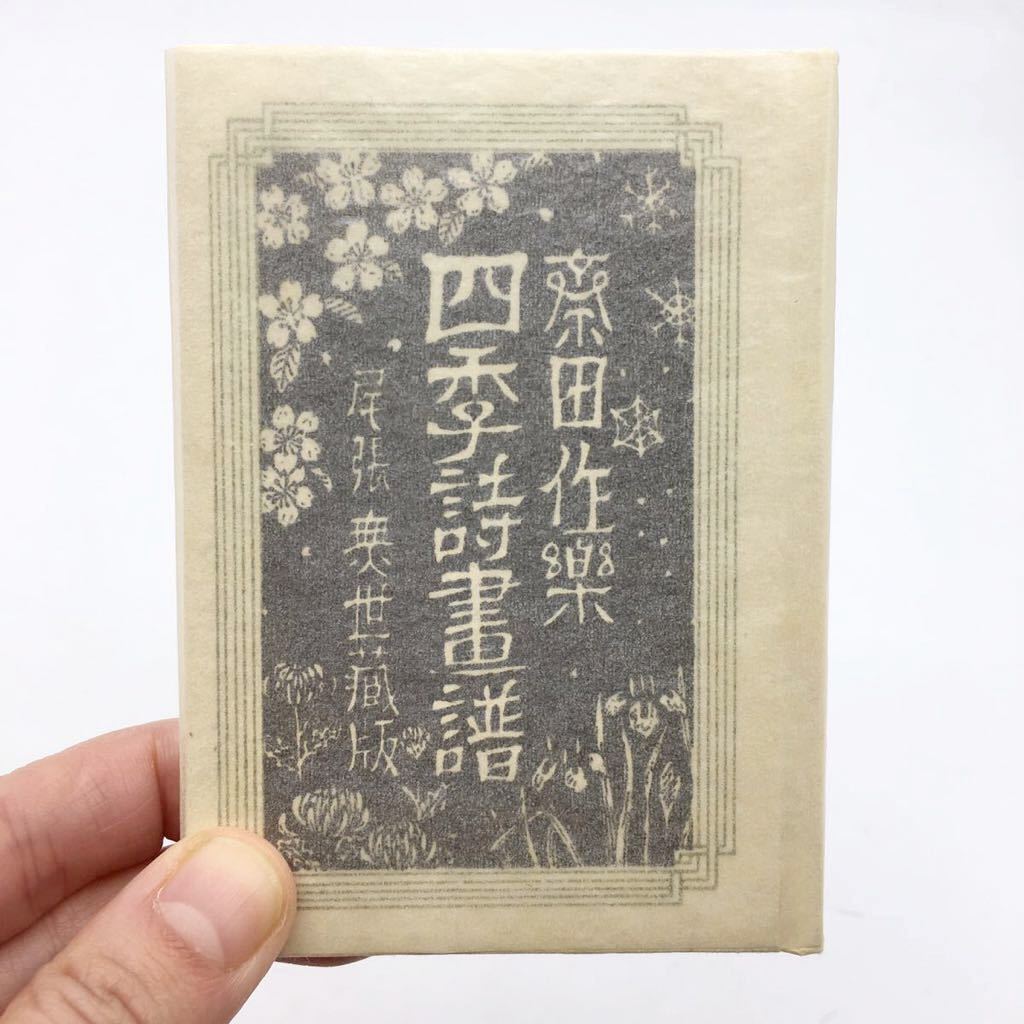 斎田作樂
四季詩畫譜
尾張 無世藏版